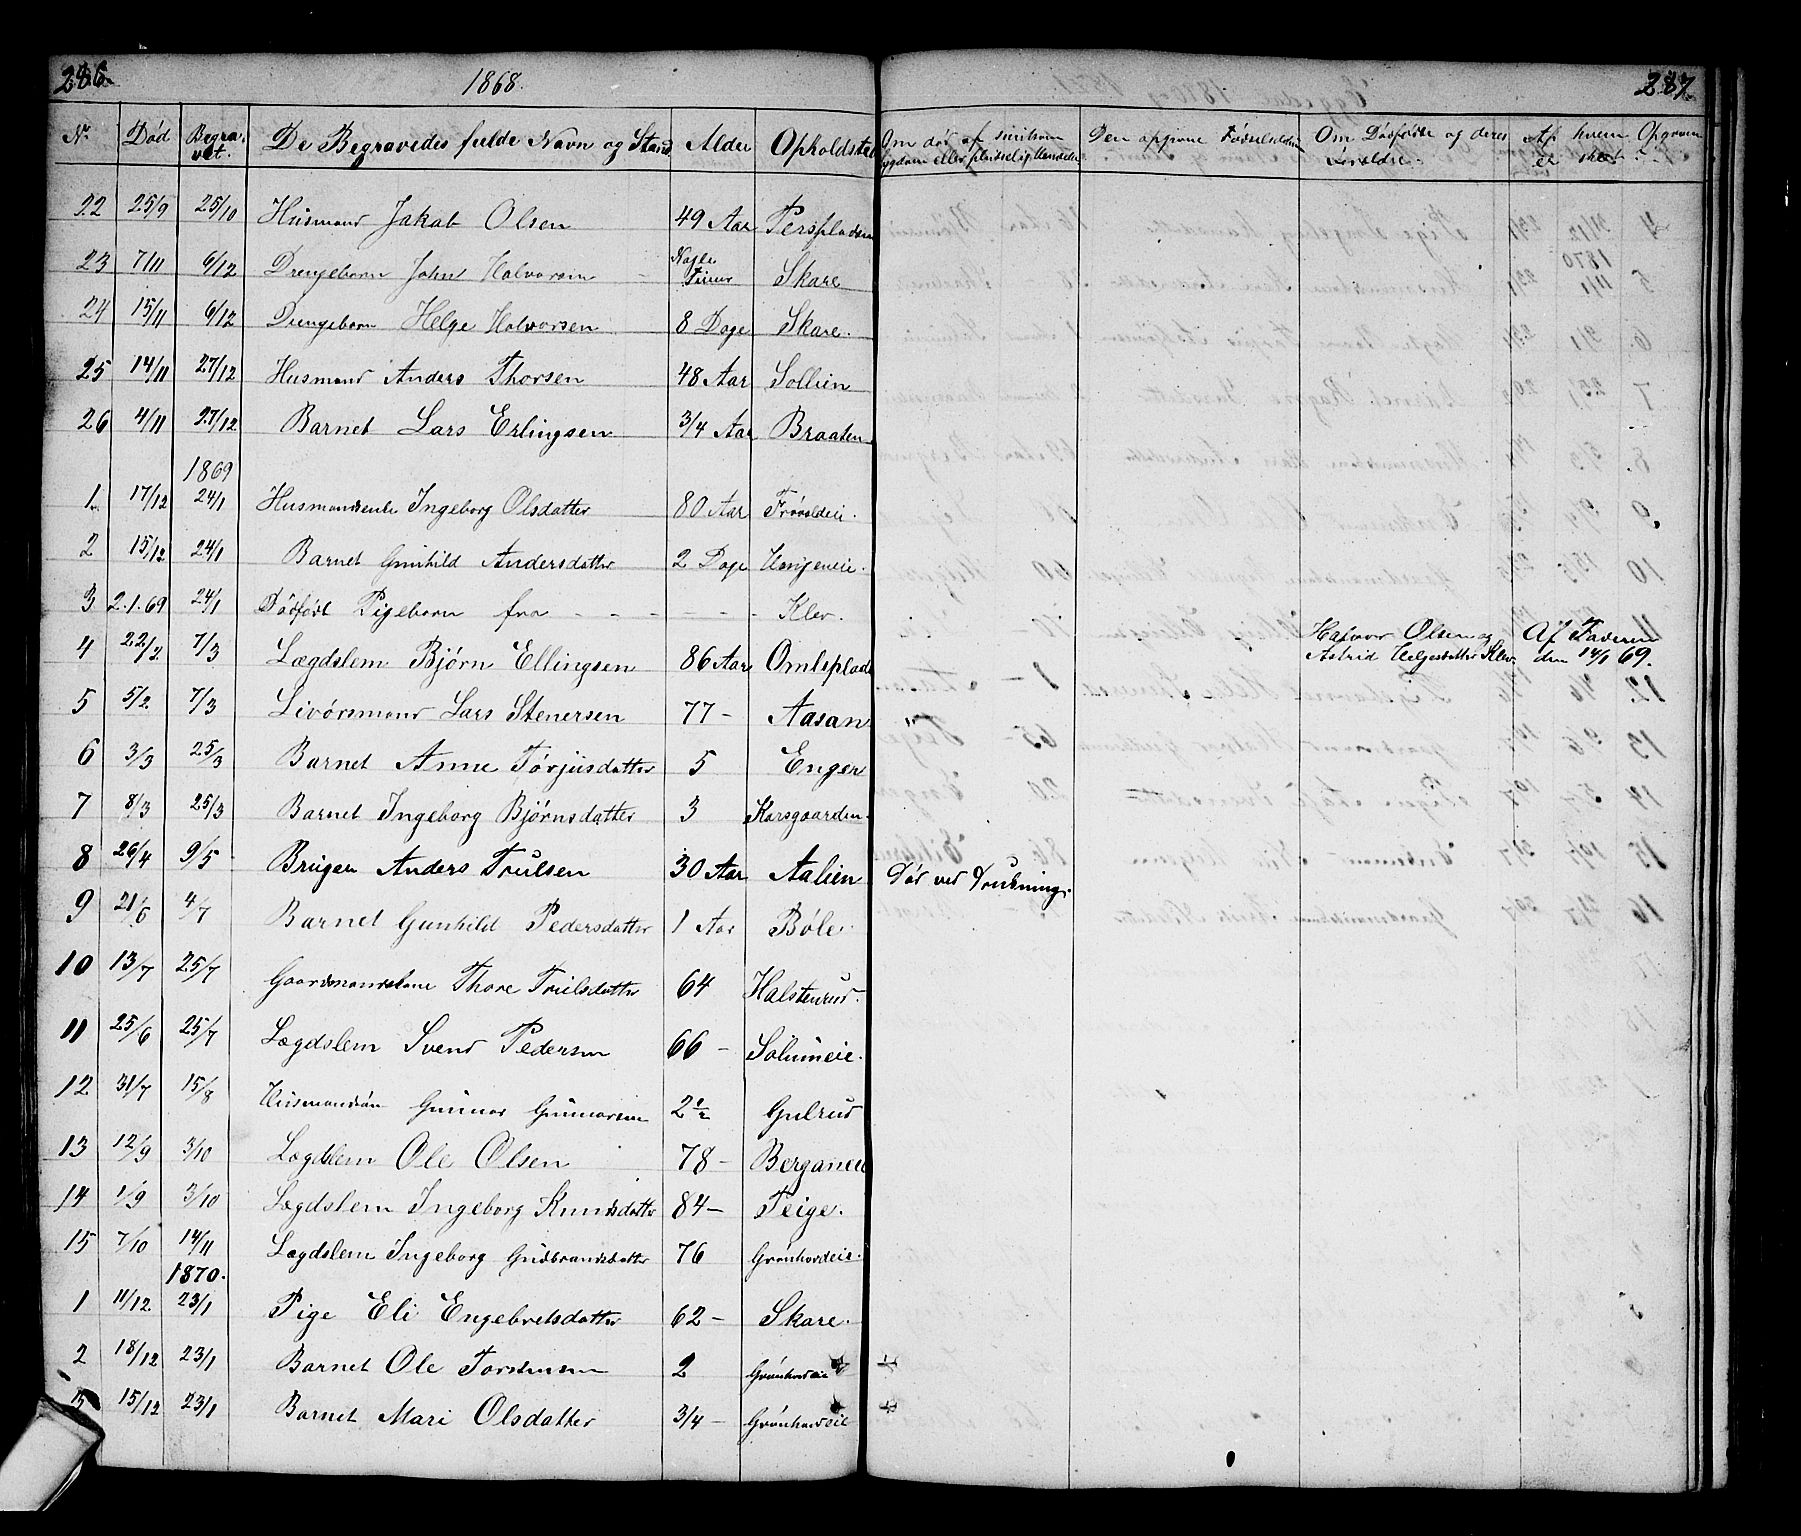 286.
1868.
287.
Nr. Død Begravet. De Begravedes fulde Navn og Stand Alder Opholdsted Om død af smitsom Sygdom eller pludselig Hændelse Den opgivne Fødselsdatum Om Dødfødte og deres Forældre. Af hvem Opgraven er skeet
22 25/9 25/10 Husmand Jakob Olsen 49 Aar Perspladsen
23 7/11 6/12 Drengebarn John Halvorsen Nogle Timer Skare
24 15/11 6/12 Drengebarn Helge Halvorsen 8 Dage Skare.
25 14/11 27/12 Husmand Anders Thorsen 48 Aar Sollien
26 4/11 27/12 Barnet Lars Erlingsen 3/4 Aar Braaten
1869
1. 17/12 24/1 Husmandsenke Ingeborg Olsdatter 80 Aar Frøvoldeie.
2 15/12 24/1 Barnet Gunhild Andersdatter 2 Dage
3 2.1.69 24/1 Dødfødt Pigebarn fra - - - - - - Klev.
Halvor Olsen og Af Faderen
Astrid Helgesdatter Klev. den 14/1 69.
4 22/2 7/3 Lægdslem Bjørn Ellingsen 86 Aar Omlsplads
5 5/2 7/3 Livørsmand Lars Stenersen 77 - Aasan
6 3/3 25/3 Barnet Anne Tørjusdatter 5 Enger
7 8/3 25/3 Barnet Ingeborg Bjørnsdatter 3 Korsgaarden.
8 26/4 9/5 Bruger Anders Trulsen 30 Aar Aalien Død ved Drukning.
9 21/6 4/7 Barnet Gunhild Pedersdatter 1 Aar Bøle.
10 13/7 25/7 Gaardmandskone Thore Trulsdatter 64 Halstenrud.
11 25/6 25/7 Lægdslem Svend Pedersen 66 - Solumeie.
12 31/7 15/8 Husmandsøn Gunnar Gunnarsen 2 1/2 Gulrud
13 12/9 3/10 Lægdslem Ole Olsen 78 - Berganeie
14 1/9 3/10 Lægdslem Ingeborg Knudsdatter 84 - Teige.
15 7/10 14/11 Lægdslem Ingeborg Gudbrandsdatter 76 Grønhovdeie.
1870.
1 11/12 23/1 Pige Eli Engebretsdatter 62 - Skare.
2 18/12 23/1 Barnet Ole Torstensen 2 Grønhovdeie
3 15/12 23/1 Barnet Mari Olsdatter 3/4 - Grønhovdeie